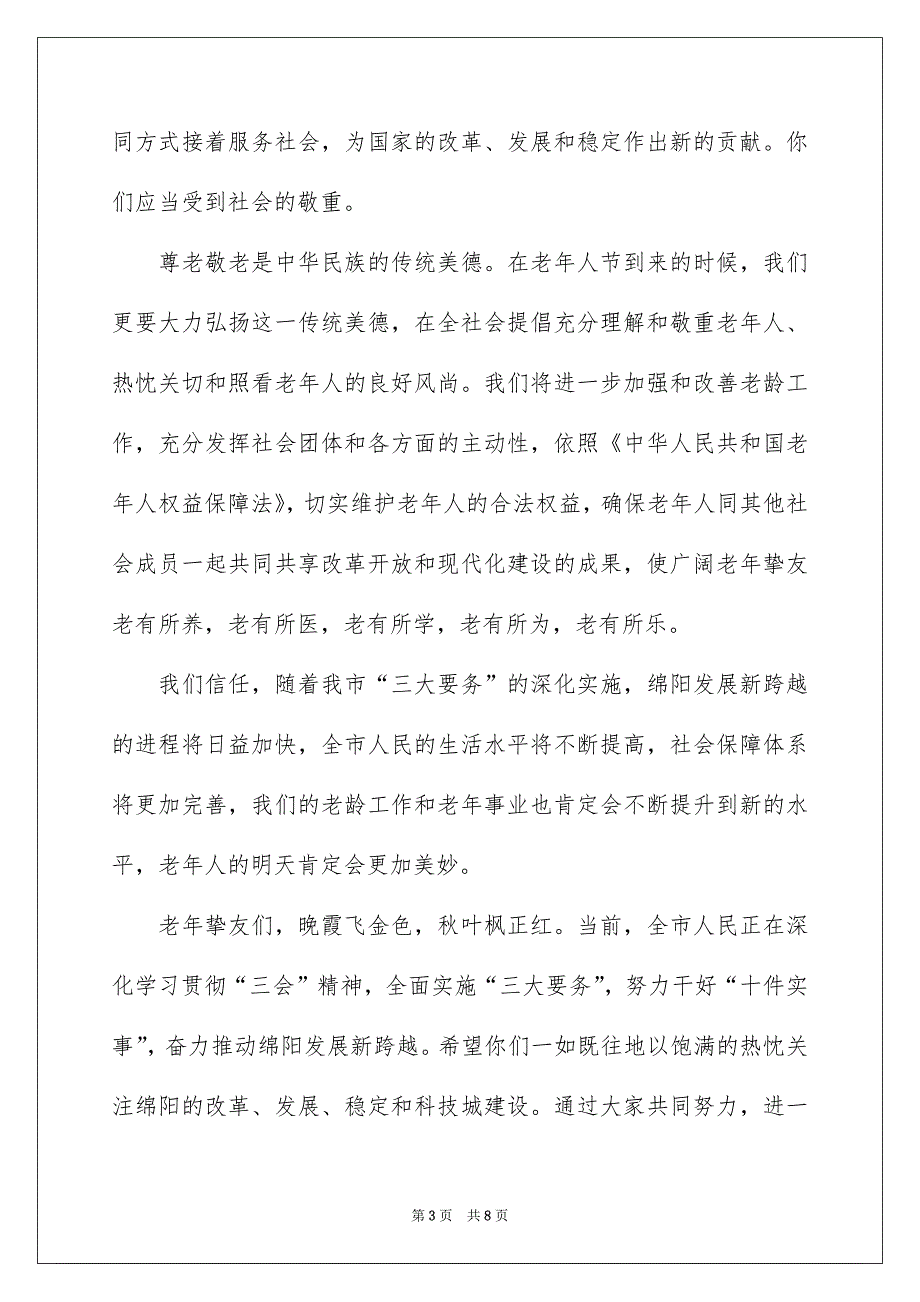 同方式接着服务社会，为国家的改革、发展和稳定作出新的贡献。你
们应当受到社会的敬重。
尊老敬老是中华民族的传统美德。在老年人节到来的时候，我们
更要大力弘扬这一传统美德，在全社会提倡充分理解和敬重老年人、
热忱关切和照看老年人的良好风尚。我们将进一步加强和改善老龄工
作，充分发挥社会团体和各方面的主动性，依照《中华人民共和国老
年人权益保障法》，切实维护老年人的合法权益，确保老年人同其他社
会成员一起共同共享改革开放和现代化建设的成果，使广阔老年挚友
老有所养，老有所医，老有所学，老有所为，老有所乐。
我们信任，随着我市“三大要务”的深化实施，绵阳发展新跨越
的进程将日益加快，全市人民的生活水平将不断提高，社会保障体系
将更加完善，我们的老龄工作和老年事业也肯定会不断提升到新的水
平，老年人的明天肯定会更加美妙。
老年挚友们，晚霞飞金色，秋叶枫正红。当前，全市人民正在深
化学习贯彻“三会”精神，全面实施“三大要务”，努力干好“十件实
事”，奋力推动绵阳发展新跨越。希望你们一如既往地以饱满的热忱关
注绵阳的改革、发展、稳定和科技城建设。通过大家共同努力，进一
第 3 页 共 8 页